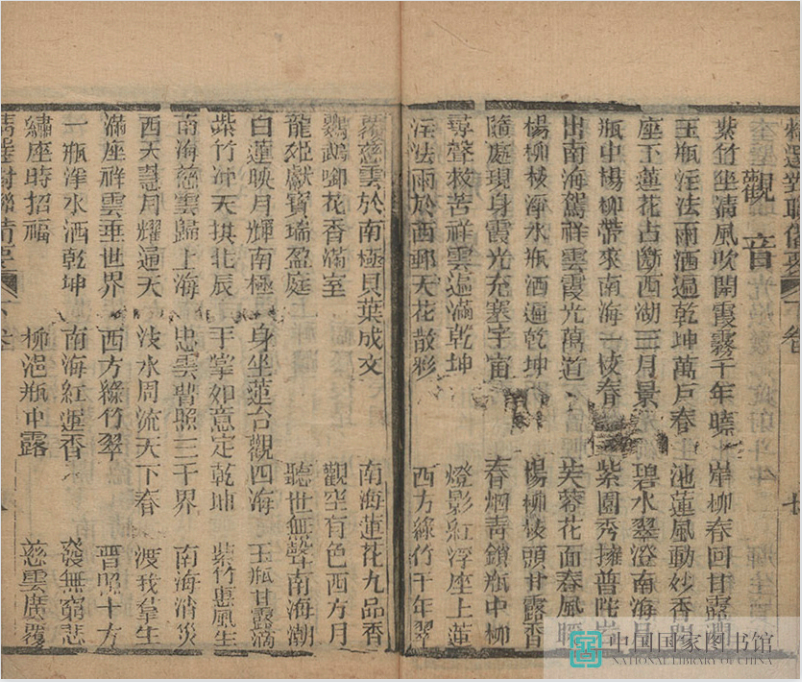 觀音
紫竹坐清風吹開霞霧千年曉 岸柳春回甘露
玉瓶注法雨洒遍乾坤萬戶春 池蓮風動妙香
座下蓮花占斷西湖三月景 碧水翠澄南海月
瓶中楊柳帶來南海一枝春 紫園秀擁普陀岩
出南海駕祥雲霞光萬道 芙蓉花面春風暖
楊柳枝淨水瓶洒遍乾坤 楊柳枝頭甘露香
隨處現身霞光充塞宇宙 春烟青鎖瓶中柳
尋聲救苦祥雲遍滿乾坤 燈影紅浮座上蓮
注法雨於西郵天花散彩 西方綠竹千年翠
覆慈雲於南極貝葉成文 南海蓮花九品香
鸚鵡啣花香滿室 觀空有色西方月
龍姬獻寶瑞盈庭 聽世無聲南海潮
白蓮映月輝南極 身坐蓮台觀四海 玉瓶甘露滴
紫竹冲天拱北辰 手掌如意定乾坤 紫竹惠風生
南海慈雲歸上海 忠雲普照三千界 南海消災
西天慧月耀遍天 法水周流天下春 渡我羣生
滿座祥雲垂世界 西方綠竹翠 晋照十方
一瓶淨水洒乾坤 南海紅蓮香 發無窮悲
繡座時招福 柳浥瓶中露 慈雲廣覆
中国国家图书馆
NATIONAL LIBRARY OF CHINA